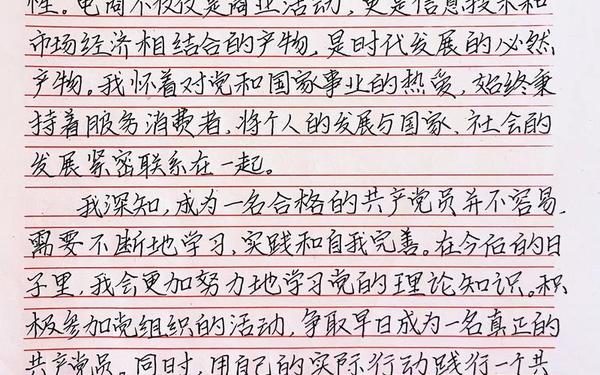 性。电商不仅仅是商业活动，更是信息技术和
市场经济相结合的产物，是时代发展的必然
产物。我怀着对党和国家事业的热爱，始终秉
持着服务消费者，将个人的发展与国家、社会的
发展紧密联系在一起。
我深知，成为一名合格的共产党员并不容易，
需要不断地学习、实践和自我完善。在今后的日
子里，我会更加努力地学习党的理论知识。积
极参加党组织的活动，争取早日成为一名真正的
共产党员。同时，用自己的实际行动践行一个共